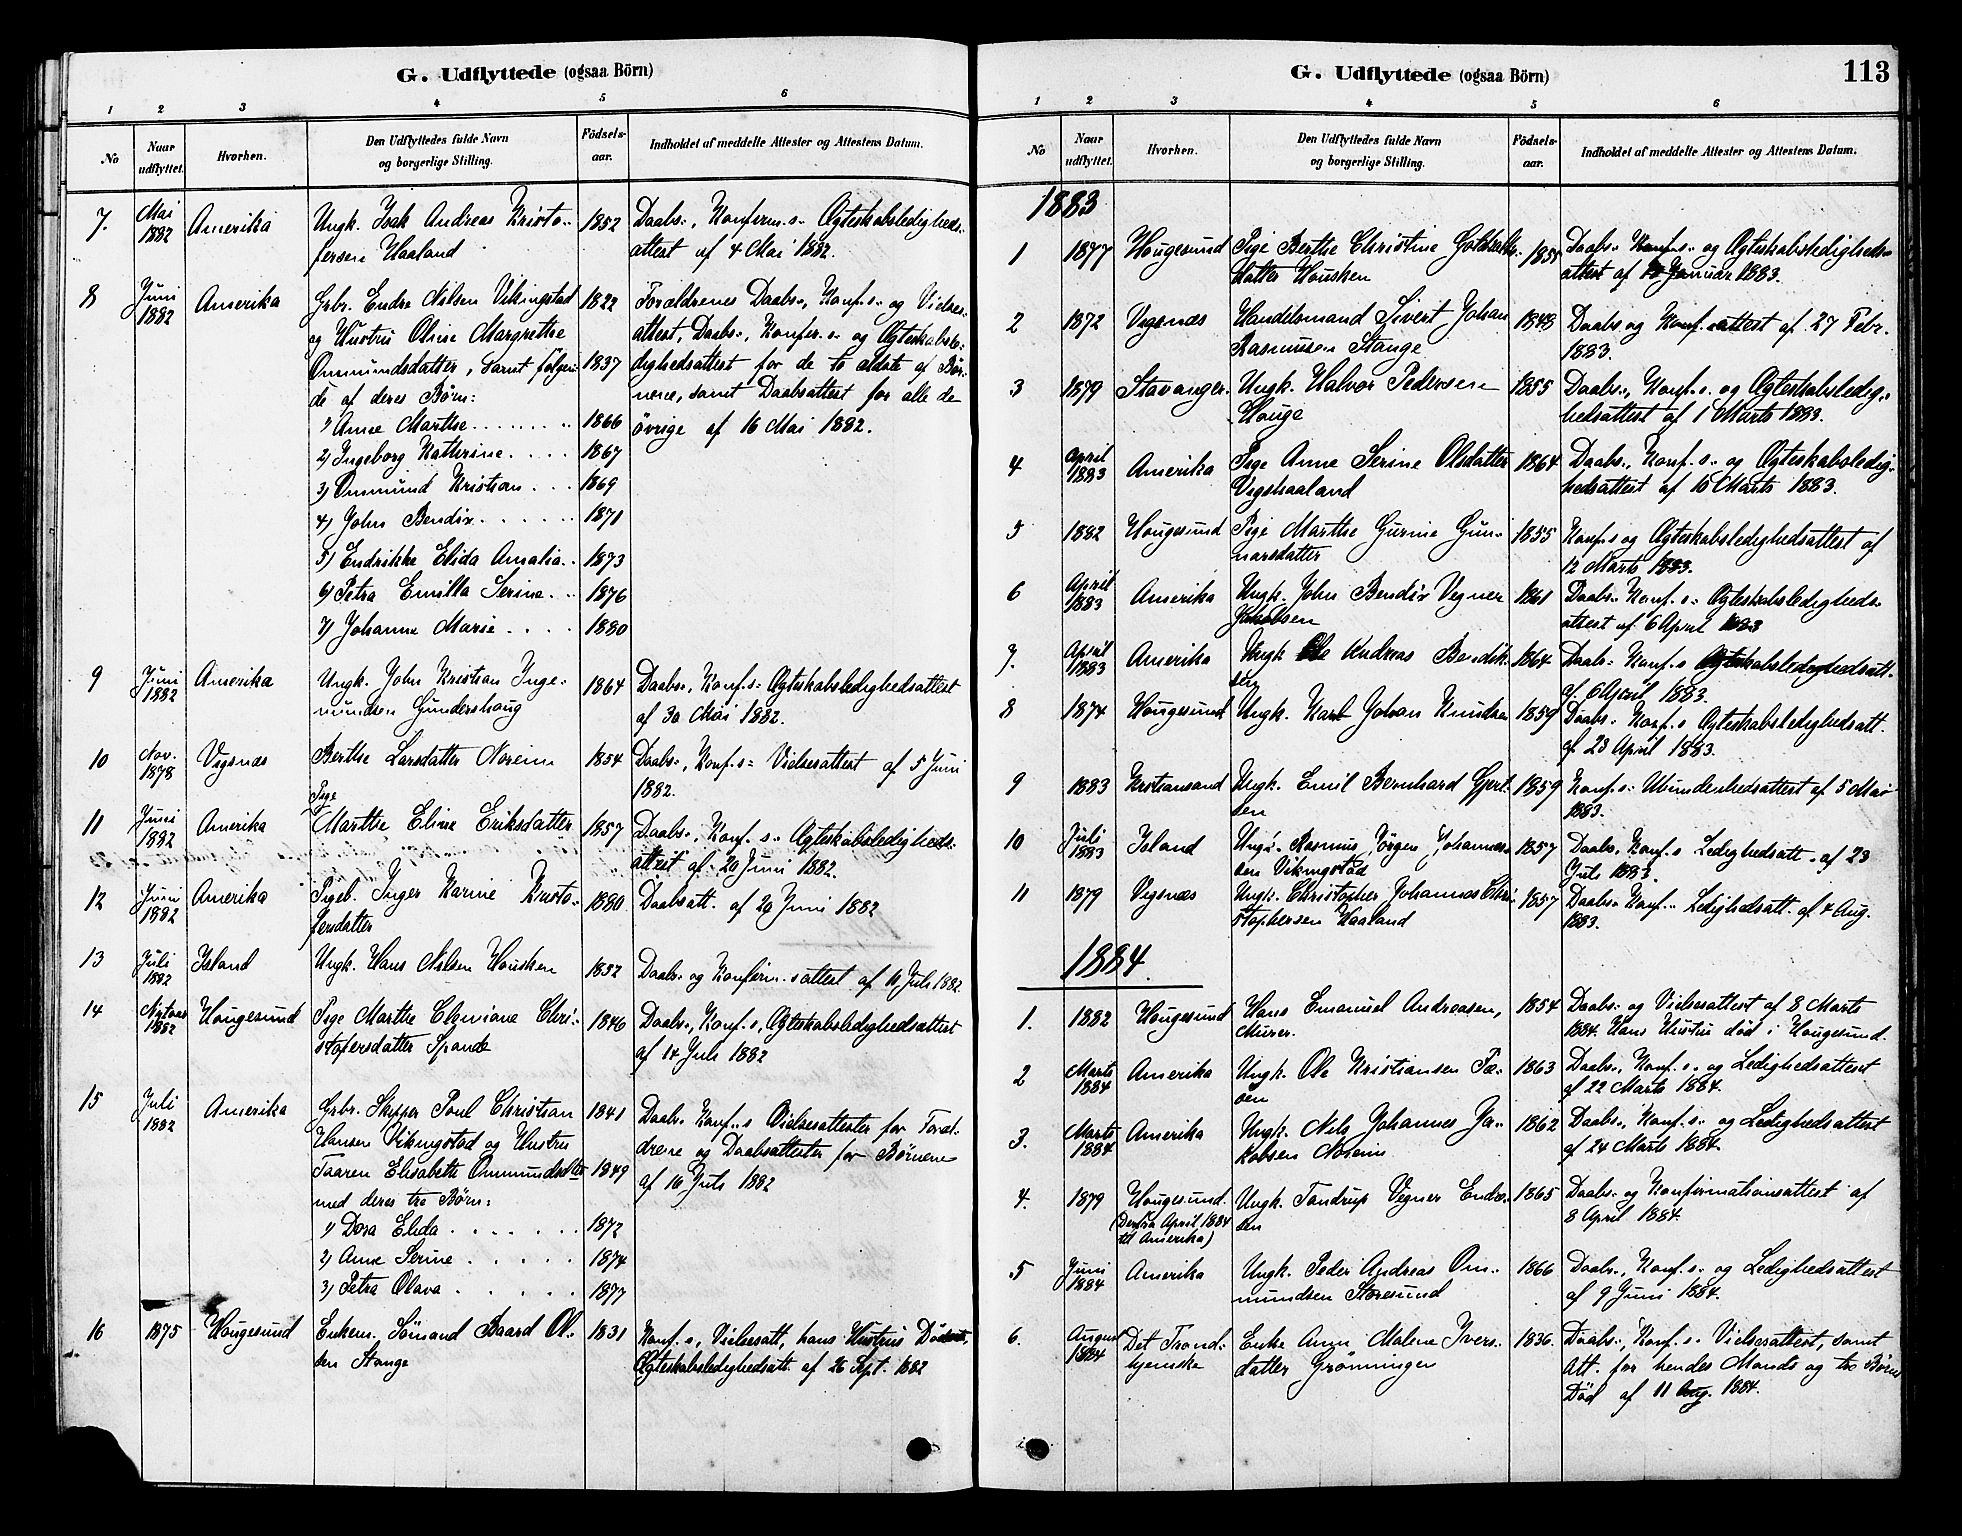 G. Udflyttede (ogsaa Börn)
1 2 3 4 5 6
No
Naar udflyttet.
Hvorhen.
Den Udflyttedes fulde Navn og borgerlige Stilling.
Födsels-aar.
Indholdet af meddelte Attester og Attestens Datum.
7. Mai 1882 Amerika Ungk. Isak Andreas Kristo- 1852 Daabs-, Konferm.s- Ægteskabsledigheds-
fersen Haaland attest af 4 Mai 1882.
8 Juni 1882 Amerika Grbr. Endre Nilsen Vikingstad 1822 Forældrenes Daabs-, Konf.s- og Vielses-
og Hustru Oline Margrethe attest, Daabs-, Konfer.s- og Ægteskabsle-
Ommundsdatter, samt følgen- 1837 dighedsattest for de to ældste af Bør-
de af deres Børn: nene, samt Daabsattest for alle de
1) Anne Marthe 1866 øvrige af 16 Mai 1882.
2) Ingeborg Kathrine 1867
3) Ommund Kristian 1869
4) John Bendix 1871
5) Endrikke Elida Amalia 1873
6) Petra Emilla Serine 1876
7) Johanne Marie 1880
9 Juni 1882 Amerika Ungk. John Kristian Inge- 1864 Daabs-, Konf.s- Ægteskabsledighedsattest
mundsen Gundershaug af 30 Mai 1882.
10 Nov. 1878 Vigsnæs Berthe Larsdatter Noreim 1854 Daabs-, Konf.s- Vielsesattest af 5 Juni
1882.
Pige
11 Juni 1882 Amerika Marthe Eline Eriksdatter 1857 Daabs-, Konf.s- Ægteskabsledigheds-
attest af 20 Juni 1882.
12 Juni 1882 Amerika Pigeb. Inger Karine Kristo- 1880 Daabsatt. af 20 Juni 1882
fersdatter
13 Juli 1882 Island Ungk. Hans Nilsen Housken 1852 Daabs- og Konferm.sattest af 11 Juli 1882.
14 1882 Hougesund Pige Marthe Chri- 1846 Daabs-, Konf.s, Ægteskabsledighedsattest
stofersdatter Spande af 14 Juli 1882
15 Juli 1882 Amerika Grbr. Skipper Poul Christian 1841 Daabs-, Konf.s Vielsesattester for Foræl-
Hansen Vikingstad og Hustru drene og Daabsattester for Børnene
Taaren Elisabeth Ommundsdtr 1849 af 16 Juli 1882
med deres tre Børn:
1) Dora Elida 1872
2) Anne Serine 1874
3) Petra Olava 1877
16 1875 Hougesund Enkem. Sömand Baard Ol- 1831 Konf.s, Vielsesatt, hans Hustrus Dødsatt.,
sen Stange Ægteskabsledighedsatt. af 26 Sept. 1882
G. Udflyttede (ogsaa Börn) 113
1 2 3 4 5 6
No
Naar udflyttet.
Hvorhen.
Den Udflyttedes fulde Navn og borgerlige Stilling.
Födsels-aar.
Indholdet af meddelte Attester og Attestens Datum.
1883
1 1877 Hougesund Pige Berthe Christine Daabs- Konf.s- og Ægteskabsledigheds-
datter Housken attest af Januar 1883.
2 1872 Vigsnæs Handelsmand Sivert Johan 1848 Daabs og Konf.sattest af 27 Febr.
Rasmusen Stange 1883.
3 1879 Stavanger. Ungk. Halvor Pedersen 1855 Daabs-, Konf.s- og Ægteskabsledig-
Houge hedsattest af 1 Marts 1883.
4 April 1883 Amerika Pige Anne Serine Olsdatter 1864 Daabs-, Konf.s- og Ægteskabsledig-
Vigshaaland hedsattest af 10 Marts 1883.
5 1882 Hougesund Pige Marthe Gurine Gun- 1855 Konf.s og Ægteskabsledighedsattest af
narsdatter 12 Marts 1883.
6 April 1883 Amerika Ungk. John Bendix Vegner 1861 Daabs- Konf.s- Ægteskabsledigheds-
Jakobsen attest af 6 April 1883
7. April 1883 Amerika Ungk Ole Andreas Bendik- 1864 Daabs- Konf.s Ægteskabsledighedsatt.
sen af 6 April 1883.
8 1874 Hougesund Ungk. Karl Johan Knudsen 1859 Daabs- Konf.s Ægteskabsledighedsatt.
af 23 April 1883.
9 1883 Kristiansand Ungk. Emil Bernhard Gjert- 1859 Konf.s- Ubundenhedsattest af 5 Mai
sen 1883.
10 Juli 1883 Island Ungk. Rasmus Jörgen Johannes- 1857 Daabs- Konf.s Ledighedsatt. af 23
sen Vikingstad Juli 1883.
11 1879 Vigsnæs Ungk. Christopher Johannes Chri- 1857 Daabs- Konf.- Ledighedsatt. af 4 Aug.
stophersen Haaland 1883.
1884.
1. 1882 Hougesund Hans Emanuel Andreasen, 1854 Daabs- og Vielsesattest af 8 Marts
Murer. 1884. Hans Hustru död i Hougesund.
2 Marts 1884 Amerika Ungk. Ole Kristiansen Fæ- 1863 Daabs-, Konf.s- og Ledighedsattest
öen af 22 Marts 1884.
3. Marts 1884 Amerika Ungk. Nils Johannes Ja- 1862 Daabs-, Konf.s- og Ledighedsattest
kobsen Noreim af 24 Marts 1884.
4. 1879 Hougesund. Ungk. Tandrup Vegner Endre- 1865 Daabs- og Konfirmationsattest af
(Derfra April 1884 sen 8 April 1884.
til Amerika)
5 Juni 1884 Amerika Ungk. Peder Andreas Om- 1866 Daabs-, Konf.s- og Ledighedsattest
mundsen Storesund af 9 Juni 1884.
6. August 1884 Det Trond- Enke Anne Malene Ivers- 1836. Daabs-, Konf.s- Vielsesattest, samt
hjemske datter Grönningen Att. for hendes Mands og to Börns
Död af 11 Aug. 1884.